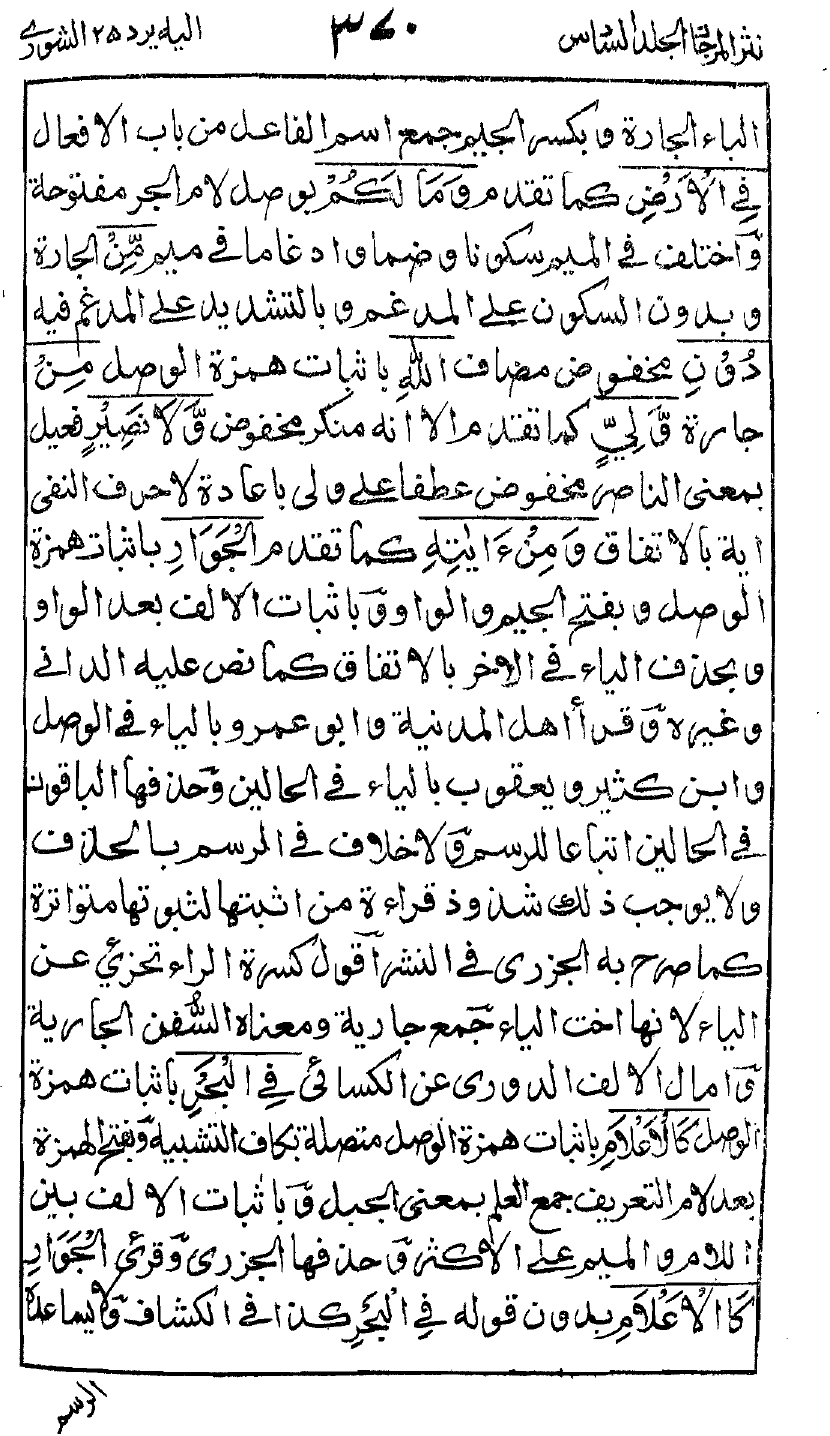 نثر المرجان المجلد السادس ٣٧٠ اليه يرد ٢٥ الشورى
الباء الجارة و بكسر الجيم جمع اسم الفاعل من باب الافعال
فِي الْاَرْضِ كما تقدم وَمَا لَكُمْ بوصل لام الجر مفتوحة
وَّاختلف في الميم سكونا و ضما و ادغاما في ميم مِّنْ الجارة
و بدون السكون على المدغم و بالتشديد على المدغم فيه
دُوْنِ مخفوض مضاف اللّٰهِ باثبات همزة الوصل مِنْ
جارة وَّلِيٍّ كما تقدم الا انه منكر مخفوض وَّلَا نَصِيْرٍ فعيل
بمعنى الناصر مخفوض عطفا على ولى باعادة لا حرف النفى
اية بالاتفاق وَمِنْ ءَايٰتِهِ كما تقدم الْجَوَارِ باثبات همزة
الوصل و بفتح الجيم و الواو وَّباثبات الالف بعد الواو
و بحذف الياء في الاخر بالاتفاق كما نص عليه الدانى
و غيره وَّقرأ اهل المدنية و ابو عمرو بالياء في الوصل
و ابن كثير و يعقوب بالياء في الحالين وَّحذفها الباقون
في الحالين اتباعا للرسم وَّلا خلاف في الرسم بالحذف
ولا يوجب ذلك شذوذ قراءة من اثبتها لثبوتها متواترة
كما صرح به الجزرى في النشر اَقول كسرة الراء تجزئ عن
الياء لانها اخت الياء جَمع جارية و معناه السُّفن الجارية
وَّامال الالف الدورى عن الكسائى فِي الْبَحْرِ باثبات همزة
الوصل كَالْاَعْلَامِ باثبات همزة الوصل متصلة بكاف التشبيه وَّبفتح الهمزة
بعد لام التعريف جمع العلم بمعنى الجبل وَّباثبات الالف بين
اللام و الميم على الاكثر وَّحذفها الجزرى وَّقرئ الْجَوَارِ
كَالْاَعْلَامِ بدون قوله فِي الْبَحْرِ كذا في الكشاف وَّلا يساعده
الرسم